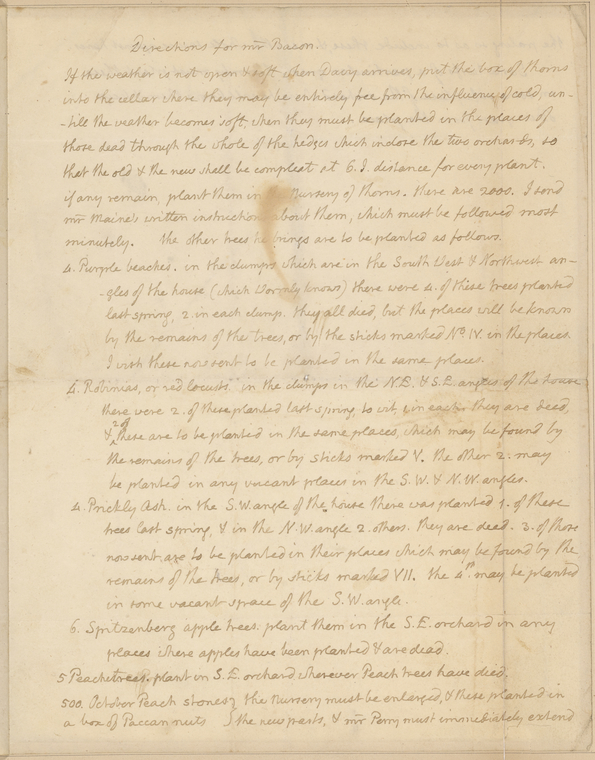 Directions for mr Bacon.
If the weather is not open & soft when Davy arrives, put the box of thorns
into the cellar where they may be entirely free from the influence of cold, un-
-till the weather becomes soft, when they must be planted in the places of
those dead through the whole of the hedges which inclose the two orchards, so
that the old & the new shall be compleat at 6. I. distance for every plant.
if any remain, plant them in the nursery of thorns. there are 2000. I send
mr Maine's written instructions about them, which must be followed most
minutely. the other trees he brings are to be planted as follows.
4. Purple beaches. in the clumps which are in the South West & Northwest an-
-gles of the house (which Wormly knows) there were 4. of these trees planted
last spring, 2. in each clump. they all died, but the places will be known
by the remains of the trees, or by the sticks marked No. IV. in the places.
I wish these now sent to be planted in the same places.
4. Robinias, or red locusts. in the clumps in the N.E. & S.E. angles of the house
there were 2. of these planted last spring, to wit, 1. in each. they are dead,
& 2 of these are to be planted in the same places, which may be found by
the remains of the trees, or by sticks marked V. the other 2. may
be planted in any vacant places in the S.W. & N.W. angles.
4. Prickly Ash. in the S.W. angle of the house there was planted 1. of these
trees last spring, & in the N.W. angle 2. others. they are dead. 3. of those
now sent are to be planted in their places which may be found by the
remains of the trees, or by sticks marked VII. the 4th. may be planted
in some vacant space of the S.W. angle.
6. Spitzenberg apple trees. plant them in the S.E. orchard in any
places where apples have been planted & are dead.
5 Peach trees. plant in S.E. orchard wherever Peach trees have died.
500. October Peach stones } the nursery must be enlarged, & these planted in
a box of Paccan nuts } the new parts, & mr Perry must immediately extend